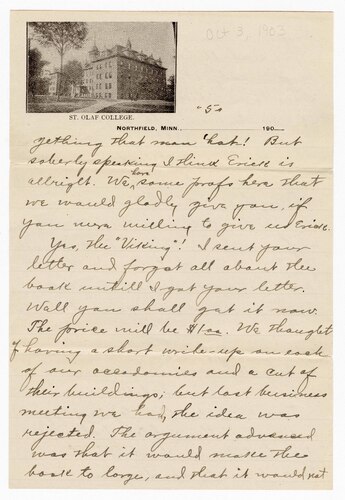 Oct 3, 1903
"5"
ST. OLAF COLLEGE.
NORTHFIELD, MINN., 190
gething that man 'hat! But
soberly speaking I think Erick is
allright. We have some profs here that
we would gladly give you, if
you were willing to give us Erick.
Yes, the "Viking"! I sent your
letter and forgot all about the
book untill I got your letter.
Well you shall get it now.
The price will be $1.00. We thought
of having a short write-up on each
of our accadomies and a cut of
their buildings; but last business
meeting we had, the idea was
rejected. The argument advanced
was that it would make the
book to large, and that it would not